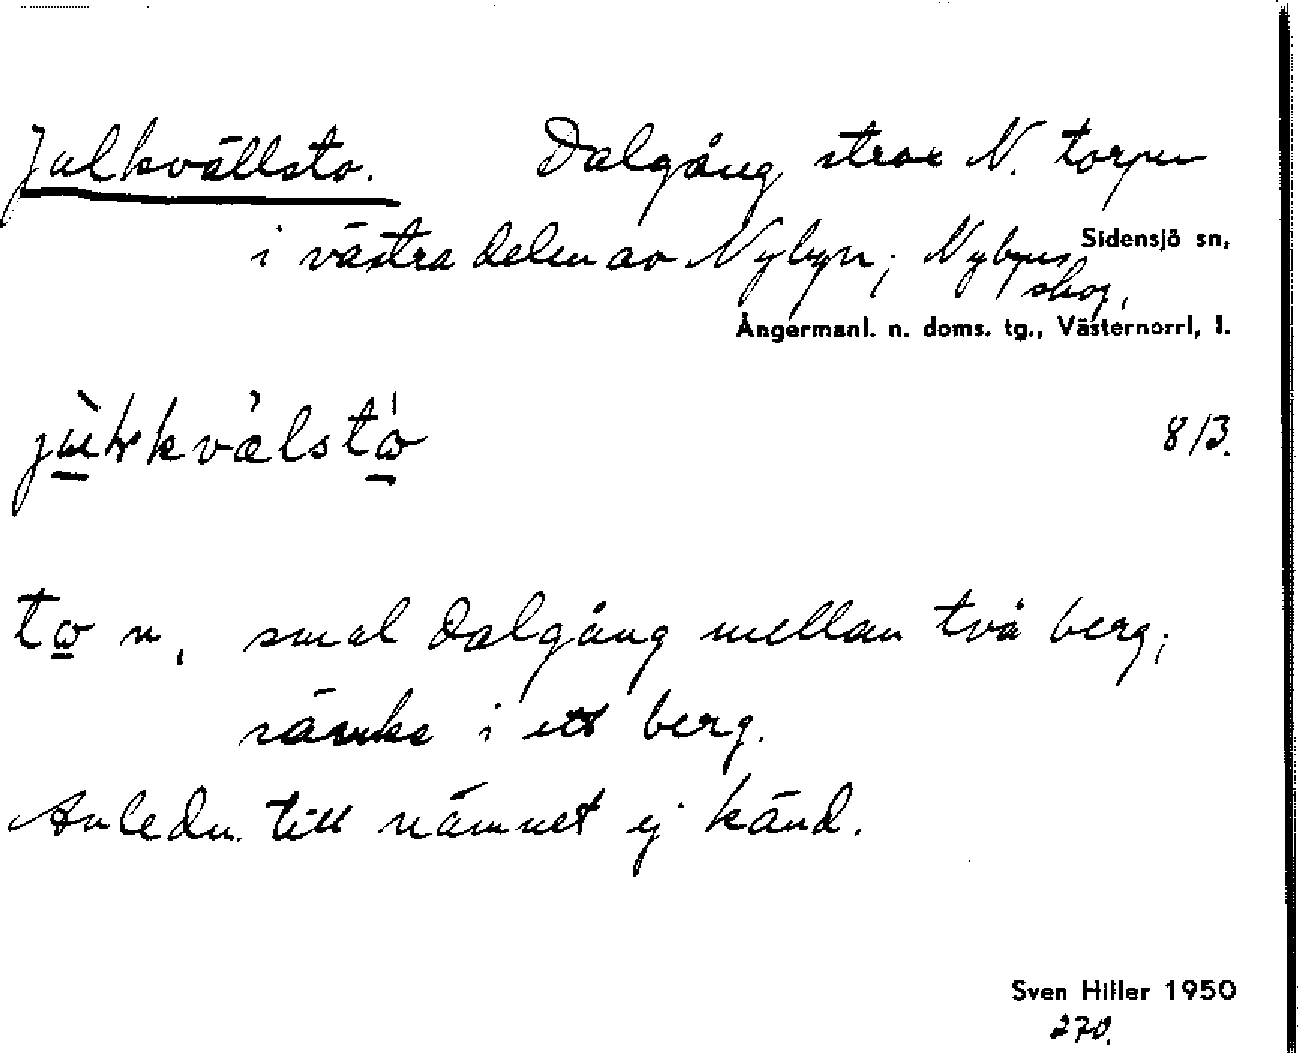 Julkvällsto. Dalgång strax N. torpen
i västra delen av Nybyn; Nybyns Sidensjö sn,
skog,
Ångermanl. n. doms. tg., Västernorrl, l.
8/3.
to n, smal dalgång mellan två berg;
sänka i ett berg.
Anledn. till nämnet ej känd.
Sven Hiller 1950
270.